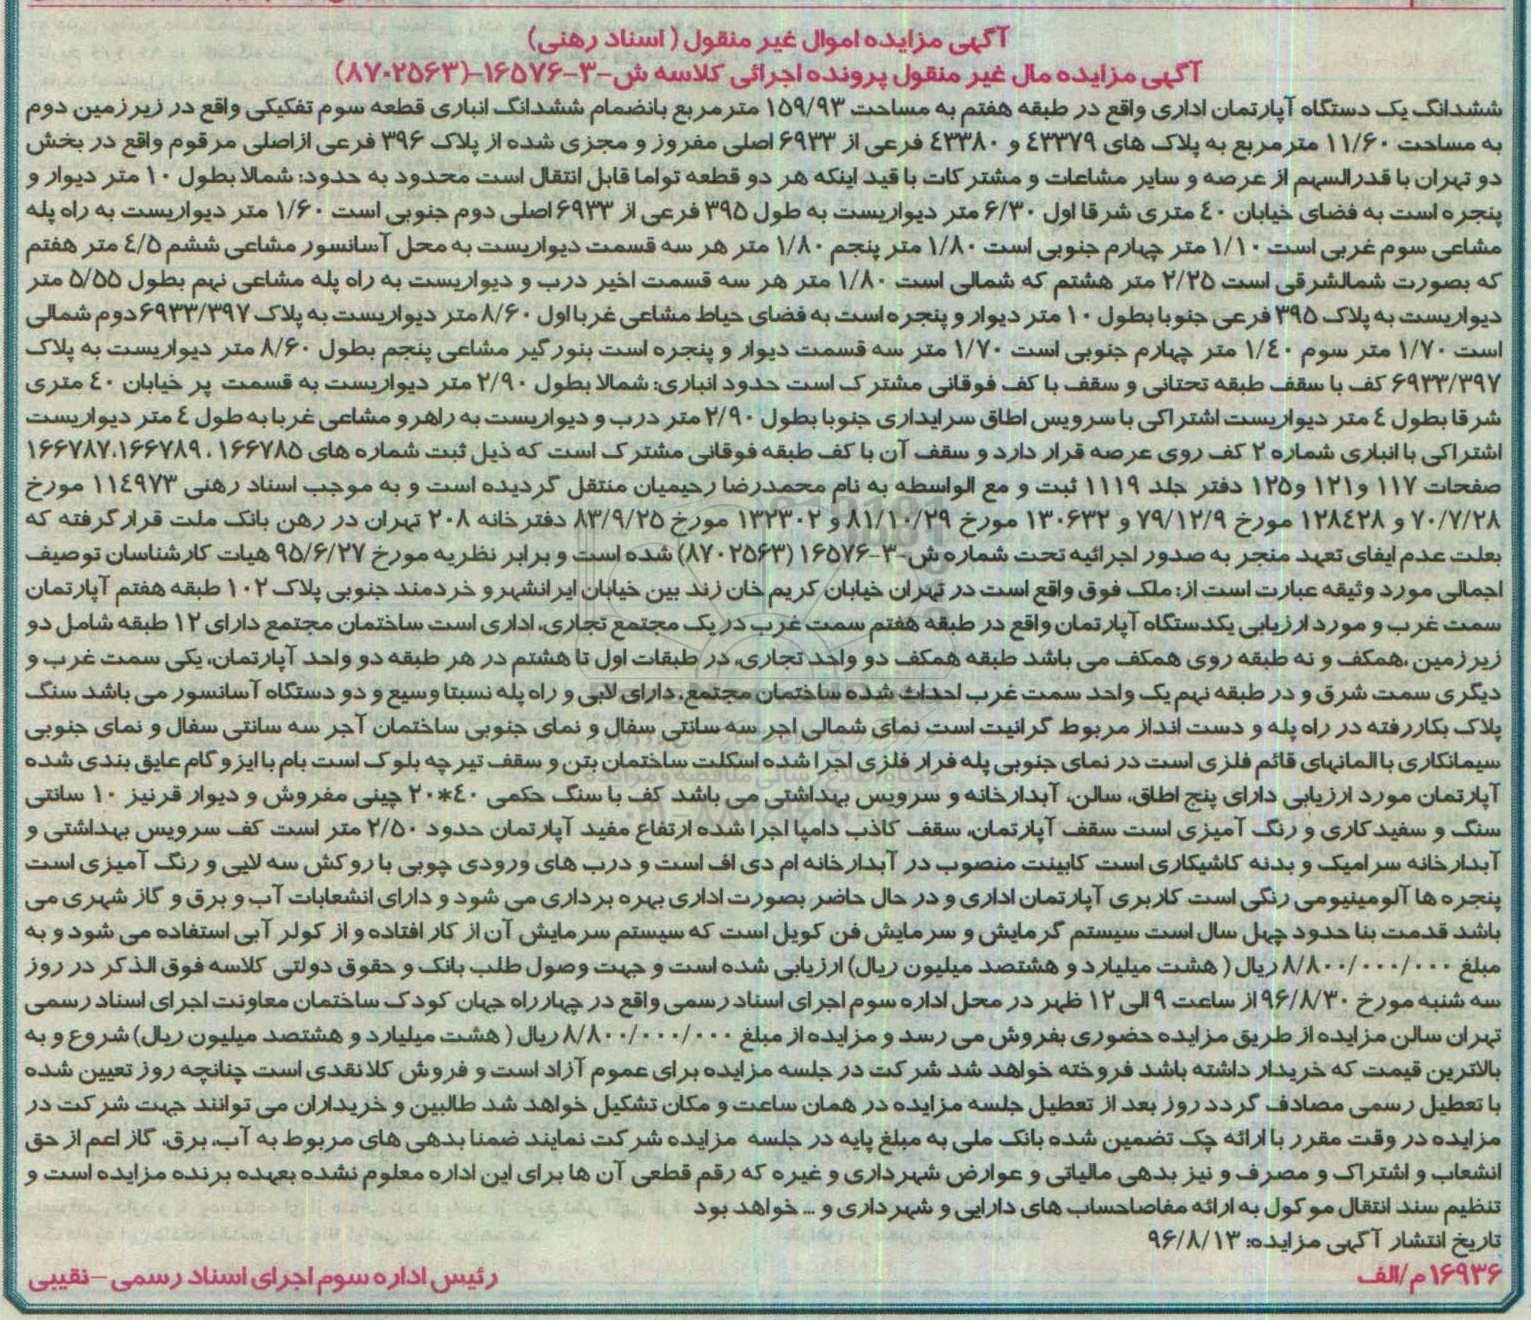 آگهی مزایده اموال غیر منقول ( اسناد رهنی)
آگهی مزایده مال غیر منقول پرونده اجرائی کلاسه ش-۳-۱۶۵۷۶-(۸۷۰۲۵۶۳)
ششدانگ یک دستگاه آپارتمان اداری واقع در طبقه هفتم به مساحت ۱۵۹/۹۳ مترمربع بانضمام ششدانگ انباری قطعه سوم تفکیکی واقع در زیرزمین دوم
به مساحت ۱۱/۶۰ مترمربع به پلاک های ٤۳۳۷۹ و ٤۳۳۸۰ فرعی از ۶۹۳۳ اصلی مفروز و مجزی شده از پلاک ۳۹۶ فرعی ازاصلی مرقوم واقع در بخش
دو تهران با قدرالسهم از عرصه و سایر مشاعات و مشترکات با قید اینکه هر دو قطعه تواما قابل انتقال است محدود به حدود: شمالا بطول ۱۰ متر دیوار و
پنجره است به فضای خیابان ٤۰ متری شرقا اول ۶/۳۰ متر دیواریست به طول ۳۹۵ فرعی از ۶۹۳۳ اصلی دوم جنوبی است ۱/۶۰ متر دیواریست به راه پله
مشاعی سوم غربی است ۱/۱۰ متر چهارم جنوبی است ۱/۸۰ متر پنجم ۱/۸۰ متر هر سه قسمت دیواریست به محل آسانسور مشاعی ششم ٤/۵ متر هفتم
که بصورت شمالشرقی است ۲/۲۵ متر هشتم که شمالی است ۱/۸۰ متر هر سه قسمت اخیر درب و دیواریست به راه پله مشاعی نهم بطول ۵/۵۵ متر
دیواریست به پلاک ۳۹۵ فرعی جنوبا بطول ۱۰ متر دیوار و پنجره است به فضای حیاط مشاعی غربا اول ۸/۶۰ متر دیواریست به پلاک ۶۹۳۳/۳۹۷ دوم شمالی
است ۱/۷۰ متر سوم ۱/٤۰ متر چهارم جنوبی است ۱/۷۰ متر سه قسمت دیوار و پنجره است بنورگیر مشاعی پنجم بطول ۸/۶۰ متر دیواریست به پلاک
۶۹۳۳/۳۹۷ کف با سقف طبقه تحتانی و سقف با کف فوقانی مشترک است حدود انباری: شمالا بطول ۲/۹۰ متر دیواریست به قسمت پر خیابان ٤۰ متری
شرقا بطول ٤ متر دیواریست اشتراکی با سرویس اطاق سرایداری جنوبا بطول ۲/۹۰ متر درب و دیواریست به راهرو مشاعی غربا به طول ٤ متر دیواریست
اشتراکی با انباری شماره ۲ کف روی عرصه قرار دارد و سقف آن با کف طبقه فوقانی مشترک است که ذیل ثبت شماره های ۱۶۶۷۸۵ ، ۱۶۶۷۸۷،۱۶۶۷۸۹
صفحات ۱۱۷ و۱۲۱ و۱۲۵ دفتر جلد ۱۱۱۹ ثبت و مع الواسطه به نام محمدرضا رحیمیان منتقل گردیده است و به موجب اسناد رهنی ۱۱٤۹۷۳ مورخ
۷۰/۷/۲۸ و ۱۲۸٤۲۸ مورخ ۷۹/۱۲/۹ و ۱۳۰۶۳۲ مورخ ۸۱/۱۰/۲۹ و ۱۳۲۳۰۲ مورخ ۸۳/۹/۲۵ دفترخانه ۲۰۸ تهران در رهن بانک ملت قرارگرفته که
بعلت عدم ایفای تعهد منجر به صدور اجرائیه تحت شماره ش-۳-۱۶۵۷۶ (۸۷۰۲۵۶۳) شده است و برابر نظریه مورخ ۹۵/۶/۲۷ هیات کارشناسان توصیف
اجمالی مورد وثیقه عبارت است از: ملک فوق واقع است در تهران خیابان کریم خان زند بین خیابان ایرانشهر و خردمند جنوبی پلاک ۱۰۲ طبقه هفتم آپارتمان
سمت غرب و مورد ارزیابی یکدستگاه آپارتمان واقع در طبقه هفتم سمت غرب در یک مجتمع تجاری، اداری است ساختمان مجتمع دارای ۱۲ طبقه شامل دو
زیرزمین ،همکف و نه طبقه روی همکف می باشد طبقه همکف دو واحد تجاری، در طبقات اول تا هشتم در هر طبقه دو واحد آپارتمان، یکی سمت غرب و
دیگری سمت شرق و در طبقه نهم یک واحد سمت غرب احداث شده ساختمان مجتمع، دارای لابی و راه پله نسبتا وسیع و دو دستگاه آسانسور می باشد سنگ
پلاک بکاررفته در راه پله و دست انداز مربوط گرانیت است نمای شمالی اجر سه سانتی سفال و نمای جنوبی ساختمان آجر سه سانتی سفال و نمای جنوبی
سیمانکاری با المانهای قائم فلزی است در نمای جنوبی پله فرار فلزی اجرا شده اسکلت ساختمان بتن و سقف تیرچه بلوک است بام با ایزوگام عایق بندی شده
آپارتمان مورد ارزیابی دارای پنج اطاق، سالن، آبدارخانه و سرویس بهداشتی می باشد کف با سنگ حکمی ٤۰*۲۰ چینی مفروش و دیوار قرنیز ۱۰ سانتی
سنگ و سفیدکاری و رنگ آمیزی است سقف آپارتمان، سقف کاذب دامپا اجرا شده ارتفاع مفید آپارتمان حدود ۲/۵۰ متر است کف سرویس بهداشتی و
آبدارخانه سرامیک و بدنه کاشیکاری است کابینت منصوب در آبدارخانه ام دی اف است و درب های ورودی چوبی با روکش سه لایی و رنگ آمیزی است
پنجره ها آلومینیومی رنگی است کاربری آپارتمان اداری و در حال حاضر بصورت اداری بهره برداری می شود و دارای انشعابات آب و برق و گاز شهری می
باشد قدمت بنا حدود چهل سال است سیستم گرمایش و سرمایش فن کویل است که سیستم سرمایش آن از کار افتاده و از کولر آبی استفاده می شود و به
مبلغ ۸/۸۰۰/۰۰۰/۰۰۰ ریال ( هشت میلیارد و هشتصد میلیون ریال) ارزیابی شده است و جهت وصول طلب بانک و حقوق دولتی کلاسه فوق الذکر در روز
سه شنبه مورخ ۹۶/۸/۳۰ از ساعت ۹ الی ۱۲ ظهر در محل اداره سوم اجرای اسناد رسمی واقع در چهارراه جهان کودک ساختمان معاونت اجرای اسناد رسمی
تهران سالن مزایده از طریق مزایده حضوری بفروش می رسد و مزایده از مبلغ ۸/۸۰۰/۰۰۰/۰۰۰ ریال ( هشت میلیارد و هشتصد میلیون ریال) شروع و به
بالاترین قیمت که خریدار داشته باشد فروخته خواهد شد شرکت در جلسه مزایده برای عموم آزاد است و فروش کلا نقدی است چنانچه روز تعیین شده
با تعطیل رسمی مصادف گردد روز بعد از تعطیل جلسه مزایده در همان ساعت و مکان تشکیل خواهد شد طالبین و خریداران می توانند جهت شرکت در
مزایده در وقت مقرر با ارائه چک تضمین شده بانک ملی به مبلغ پایه در جلسه مزایده شرکت نمایند ضمنا بدهی های مربوط به آب، برق، گاز اعم از حق
انشعاب و اشتراک و مصرف و نیز بدهی مالیاتی و عوارض شهرداری و غیره که رقم قطعی آن ها برای این اداره معلوم نشده بعهده برنده مزایده است و
تنظیم سند انتقال موکول به ارائه مفاصاحساب های دارایی و شهرداری و ... خواهد بود
تاریخ انتشار آگهی مزایده: ۹۶/۸/۱۳
۱۶۹۳۶م/الف رئیس اداره سوم اجرای اسناد رسمی -نقیبی